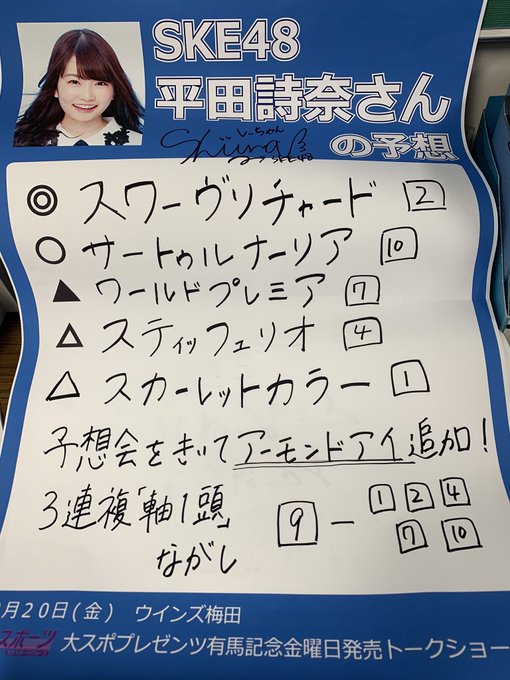 SKE48
平田詩奈さん
の予想
しぃちゃん
Shiina
SKE48
◎ スワーヴリチャード 2
○ サートゥルナーリア 10
▲ ワールドプレミア 7
△ スティッフェリオ 4
△ スカーレットカラー 1
予想会をきいてアーモンドアイ追加!
3連複「軸1頭」 9 - 1 2 4
ながし 7 10
月20日(金) ウインズ梅田
スポーツ 大スポプレゼンツ有馬記念金曜日発売トークショー